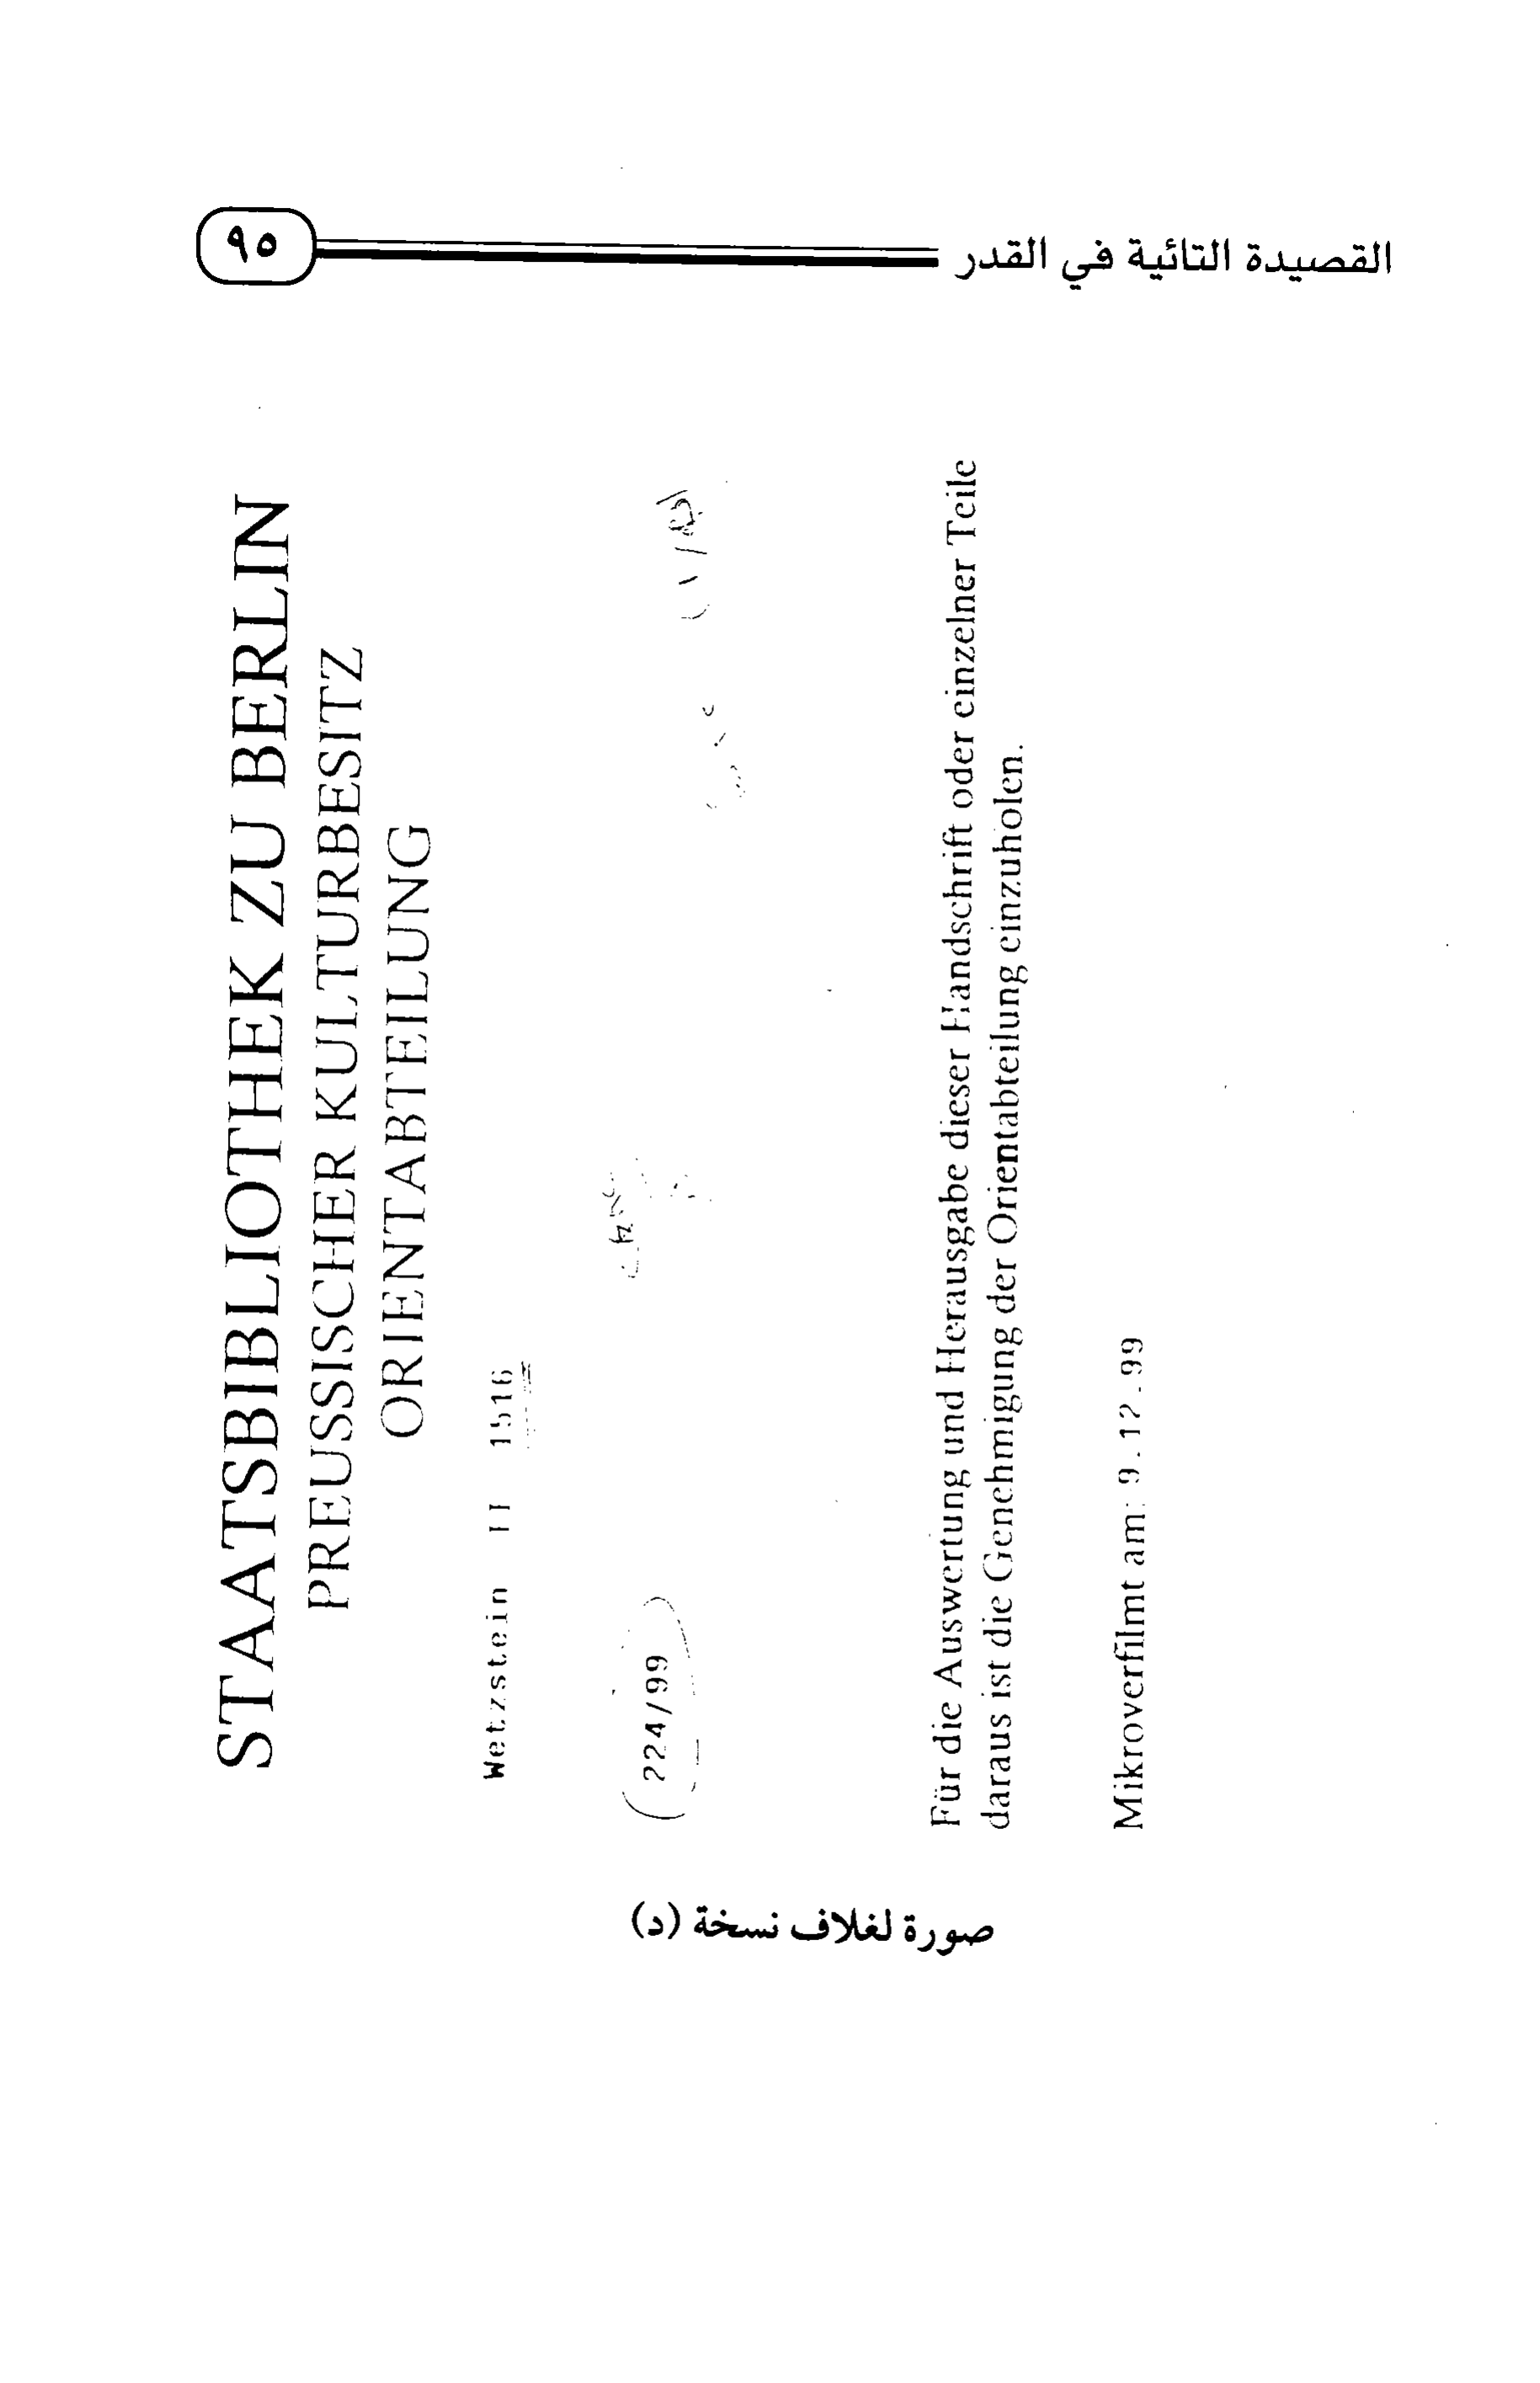 القصيدة التائية في القدر
٩٥
STAATSBIBLIOTHEK ZU BERLIN
PREUSSISCHER KULTURBESITZ
ORIENTABTEILUNG
Wetzstein II 1516
224/99
Für die Auswertung und Herausgabe dieser Handschrift oder einzelner Teile
daraus ist die Genehmigung der Orientabteilung einzuholen.
Mikroverfilmt am: 9.12.99
صورة لغلاف نسخة (د)